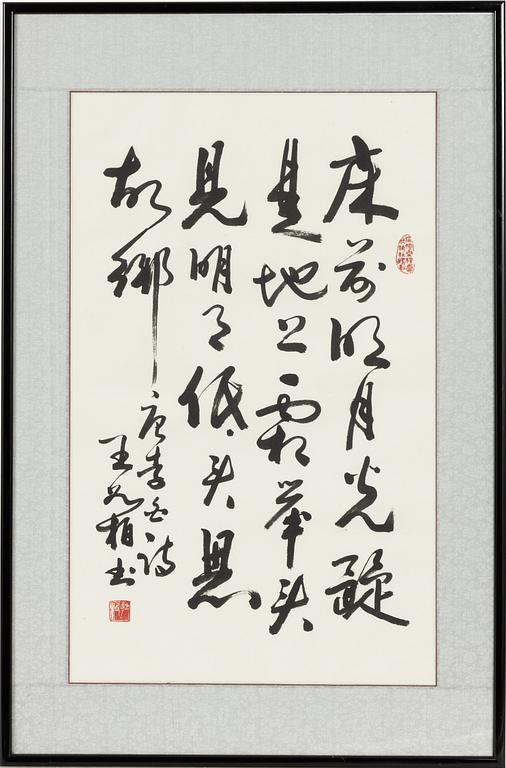 床前明月光疑
是地上霜举头
見明月低头思
故鄉
唐李白诗
王柏书